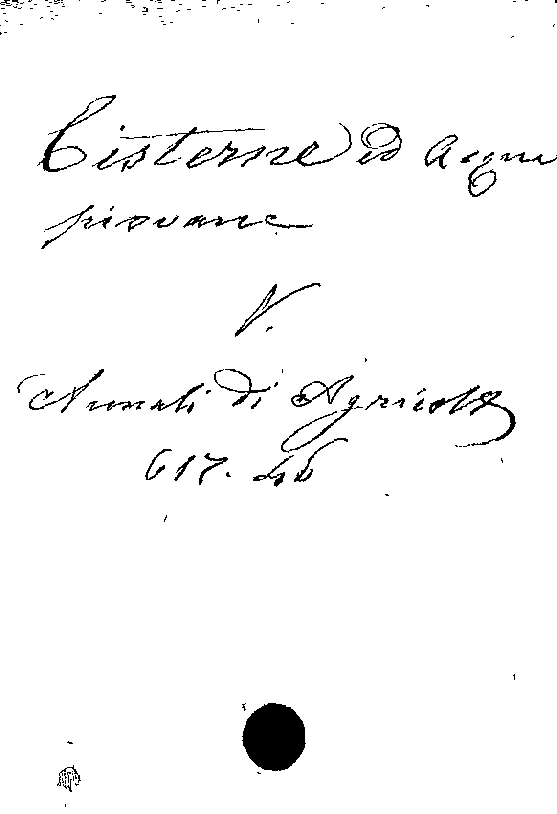 Cisterne ed Acque
piovane
V.
Annali di Agricolt
617.